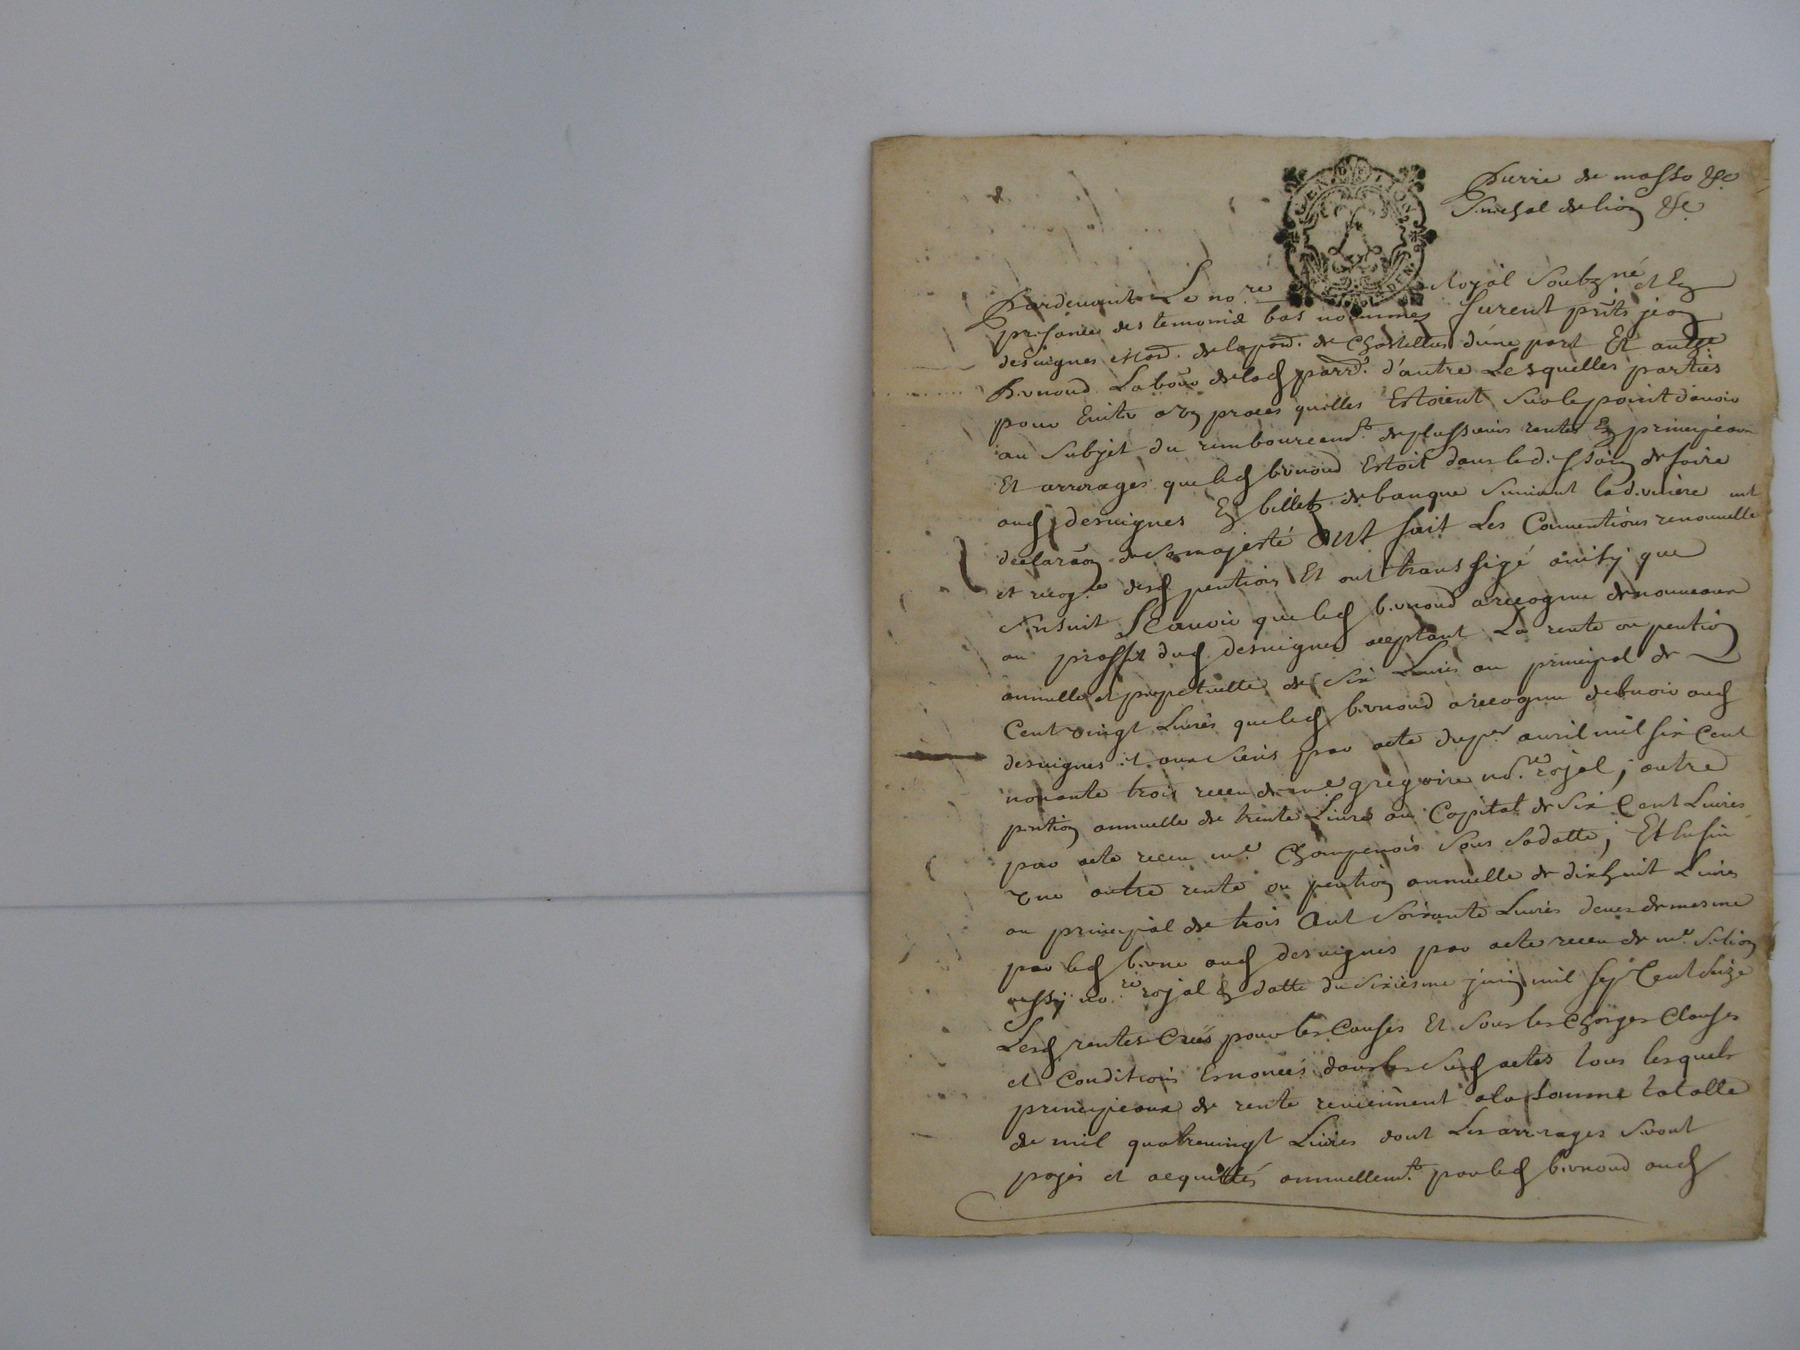 Pierre de masso &c.
Senechal de lion &c.
Pardevant Le no.re Royal Soubzné et En
presance des temoins bas nommes furent pnts jean
desvignes de la parr. de Chastellus d'une part Et
bernoud Labour. dela d parr. d'autre Lesquelles parties
pour Eviter a un proces quelles Estoient sur le point davoir
au Subjet du rembourcemt. de plussieurs rentes En principeaux
Et arrerages que le d bernoud Estoit dans le dessain de faire
au d desvignes En billets de banque suivant la derniere
declaraon de Sa majesté ont fait Les Conventions renouvelle
et recog.ce desd pentions Et ont transsigé ainsy que
sensuit Scavoir que led bernoud a recognu de nouveau
au proffit dud desvignes acceptant La rente ou pention
annuelle et perpetuelle de Six Livres au principal de
Cent vingt Livres que led bernoud a recognu debvoir aud
desvignes et aux siens par acte du per avril mil six Cent
nonante trois receu de me gregoire no.re royal; autre
pention annuelle de trente Livres au Capital de Six Cent Livres
par acte receu me. Champenois sous sa datte; Et Enfin
une autre rente ou pention annuelle de dixhuit Livres
au principal de trois Cent Soixante Livres deues de mesme
par led berne aud desvignes par acte receu de me.
no.re royal En datte du sixiesme juin mil sept Cent seize
Lesd rentes Crées pour les Causes Et sous les Charges Clauses
et Conditions Ennoncés dans les susd actes tous lesquels
principeaux de rente reviennent a la somme totalle
de mil quatrevingt Livres dont Les arrerages seront
payés et acquittés annuellemt. par led bernoud aud